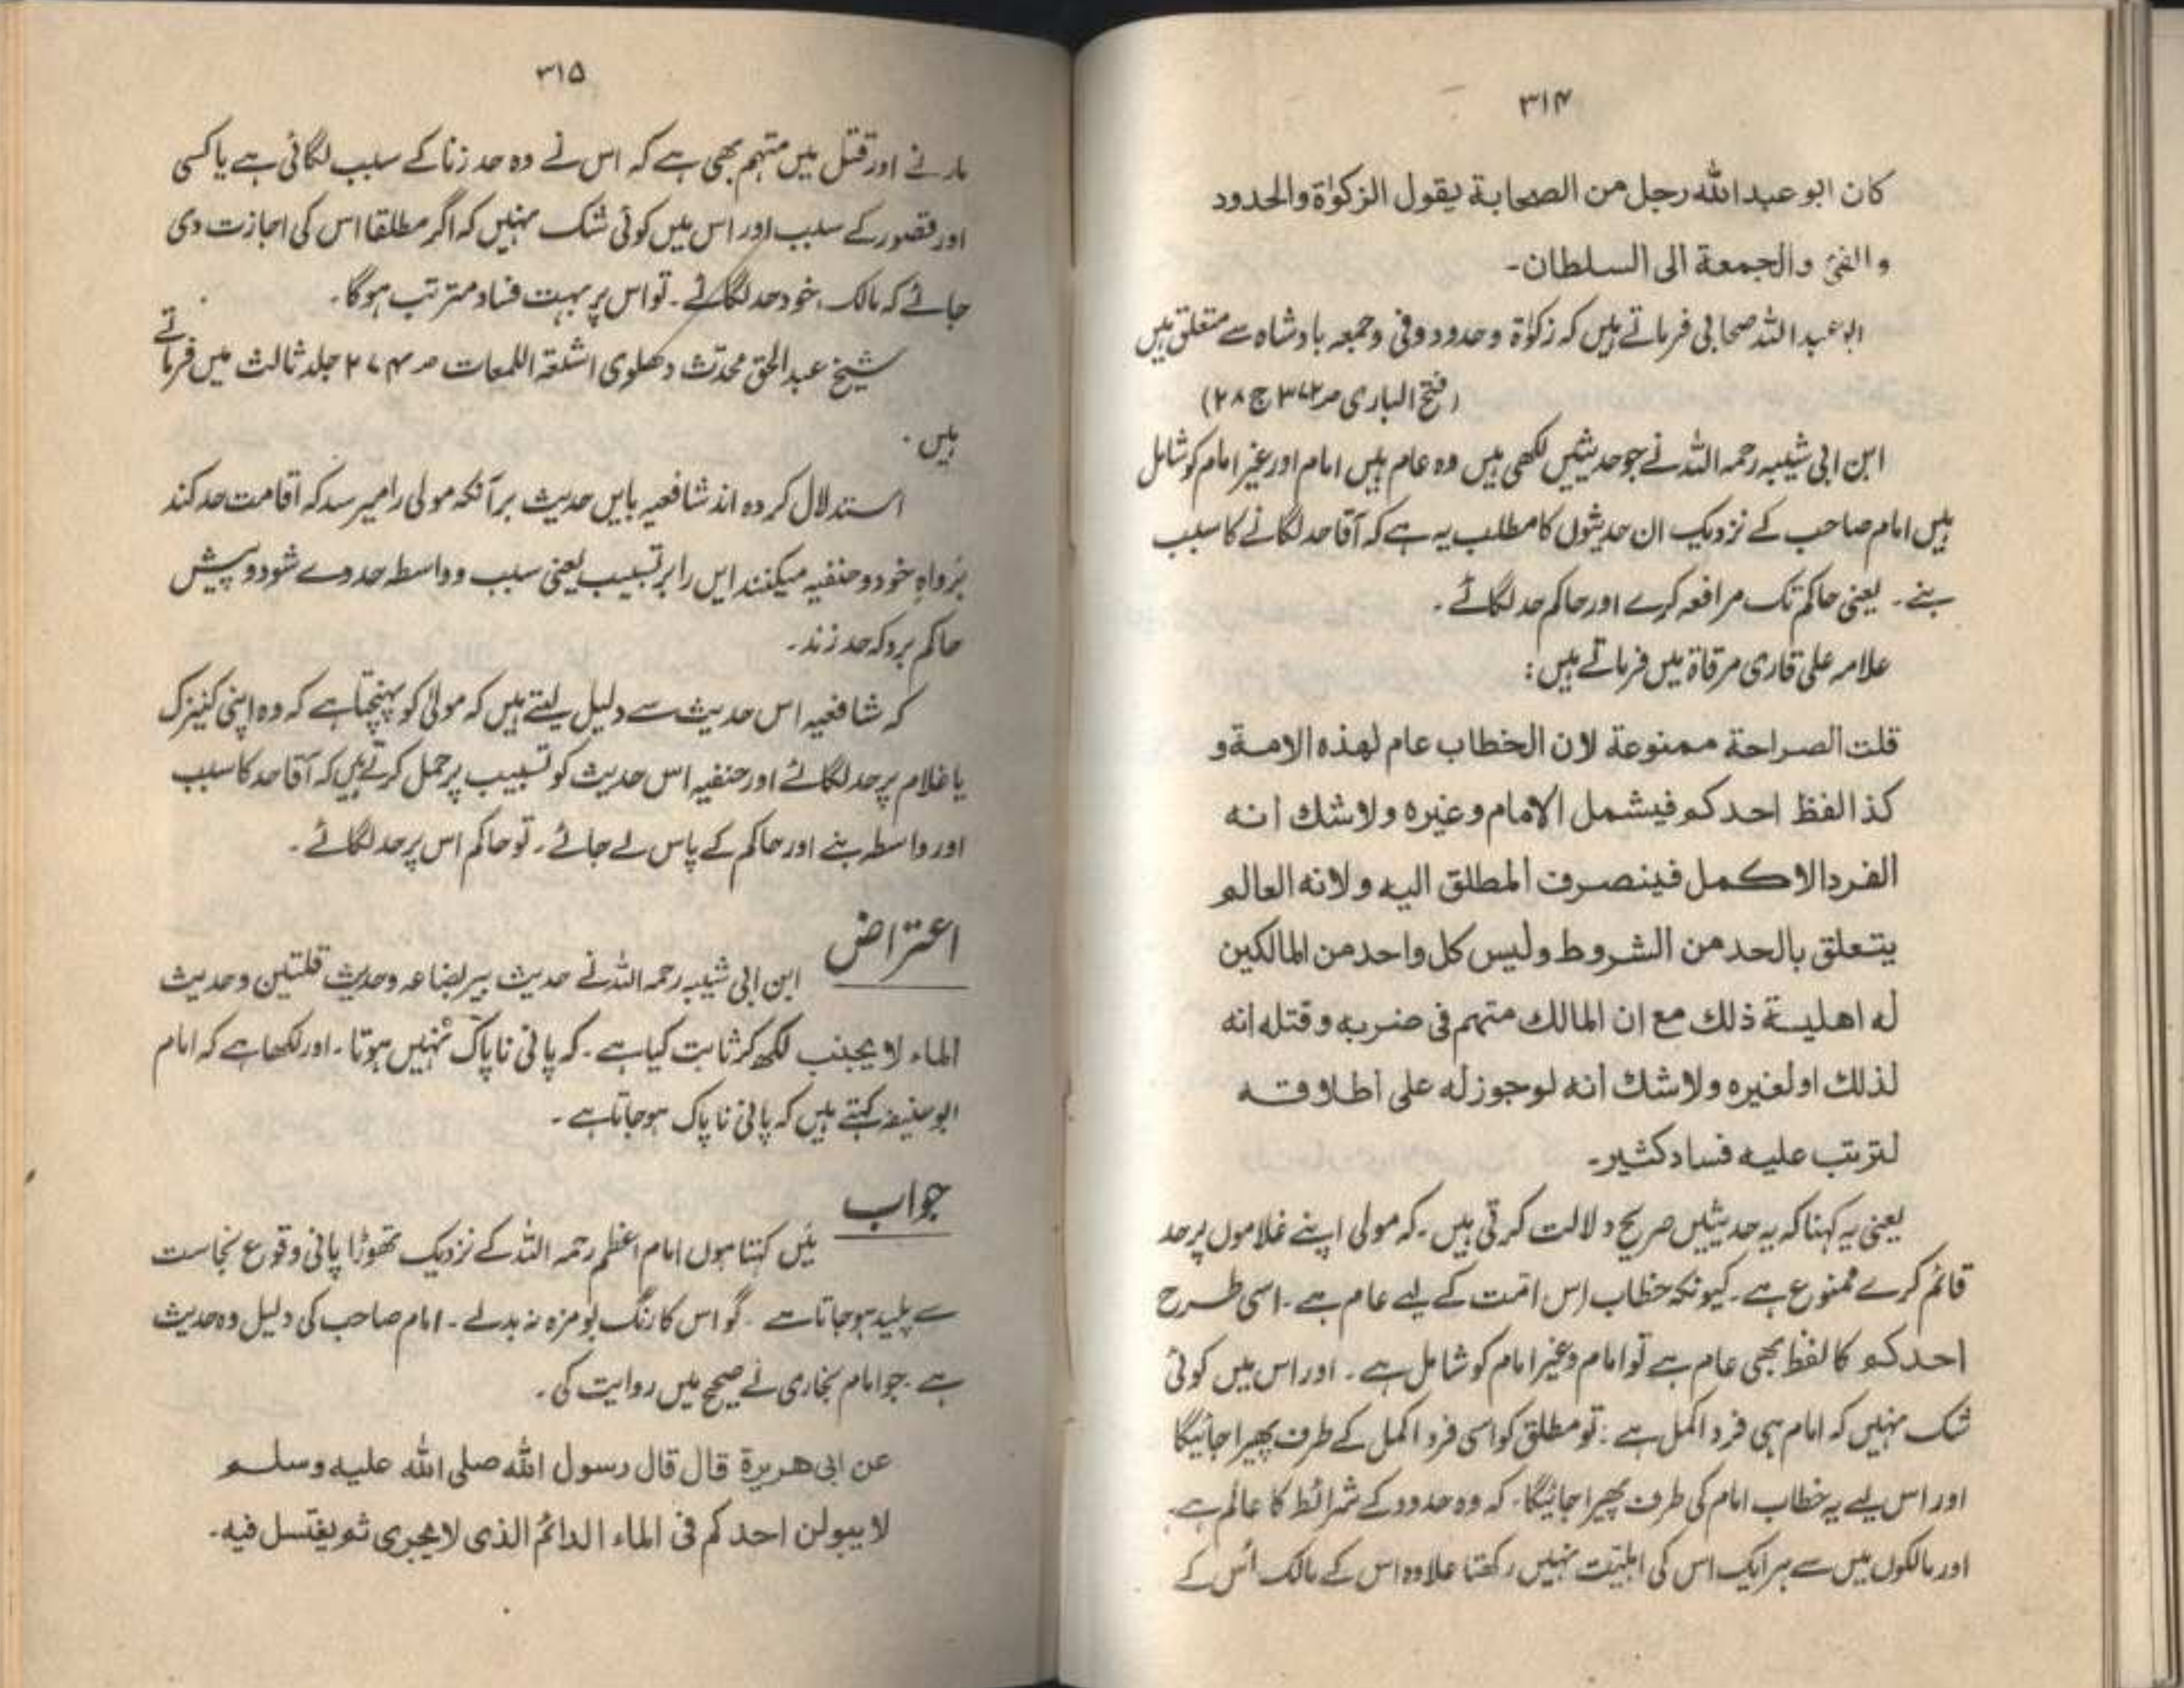 ۳۱۴
كان ابو عبد الله رجل من الصحابة يقول الزكوٰة والحدود
و الفئ والجمعة الى السلطان۔
ابو عبد اللہ صحابی فرماتے ہیں کہ زکوٰۃ وحدود وفئ وجمعہ بادشاہ سے متعلق ہیں
(فتح الباری صـ۳۷۲ ج ۲۸)
ابن ابی شیبہ رحمہ اللہ نے جو حدیثیں لکھی ہیں وہ عام ہیں امام اور غیر امام کو شامل
ہیں امام صاحب کے نزدیک ان حدیثوں کا مطلب یہ ہے کہ آقا حد لگانے کا سبب
بنے۔ یعنی حاکم تک مرافعہ کرے اور حاکم حد لگائے۔
علامہ علی قاری مرقاۃ میں فرماتے ہیں:
قلت الصراحة ممنوعة لان الخطاب عام لهذه الامة و
كذا لفظ احدكم فيشمل الامام وغيره ولا شك انه
الفرد الاكمل فينصرف المطلق اليه ولانه العالم
يتعلق بالحد من الشروط وليس كل واحد من المالكين
له اهلية ذلك مع ان المالك متهم فى ضربه وقتله انه
لذلك او لغيره ولا شك انه لوجوز له على اطلاقه
لترتب عليه فساد كثير۔
یعنی یہ کہنا کہ یہ حدیثیں صریح دلالت کرتی ہیں۔ کہ مولی اپنے غلاموں پر حد
قائم کرے ممنوع ہے۔ کیونکہ خطاب اس امت کے لیے عام ہے۔ اسی طرح
احدکم کا لفظ بھی عام ہے تو امام وغیر امام کو شامل ہے۔ اور اس میں کوئی
شک نہیں کہ امام ہی فرد اکمل ہے۔ تو مطلق کو اسی فرد اکمل کے طرف پھیرا جائیگا
اور اس لیے یہ خطاب امام کی طرف پھیرا جائیگا۔ کہ وہ حدود کے شرائط کا عالم ہے۔
اور مالکوں میں سے ہر ایک اس کی اہلیت نہیں رکھتا علاوہ اس کے مالک اس کے
۳۱۵
مارنے اور قتل میں متہم بھی ہے کہ اس نے وہ حد زنا کے سبب لگائی ہے یا کسی
اور قصور کے سبب اور اس میں کوئی شک نہیں کہ اگر مطلقا اس کی اجازت دی
جائے کہ مالک خود حد لگائے۔ تو اس پر بہت فساد مترتب ہوگا۔
شیخ عبد الحق محدث دھلوی اشعۃ اللمعات صـ ۲۷۴ جلد ثالث میں فرماتے
ہیں۔
استدلال کردہ اند شافعیہ بایں حدیث برآنکہ مولی را میرسد کہ اقامت حد کند
برواہِ خود وحنفیہ میکنند ایں را بر تسبیب یعنی سبب وواسطہ حد وے شود وپیش
حاکم برد کہ حد زند۔
کہ شافعیہ اس حدیث سے دلیل لیتے ہیں کہ مولیٰ کو پہنچتا ہے کہ وہ اپنی کنیزک
یا غلام پر حد لگائے اور حنفیہ اس حدیث کو تسبیب پر حمل کرتے ہیں کہ آقا حد کا سبب
اور واسطہ بنے اور حاکم کے پاس لے جائے۔ تو حاکم اس پر حد لگائے۔
اعتراض
ابن ابی شیبہ رحمہ اللہ نے حدیث بیر بضاعہ وحدیث قلتین وحدیث
الماء لا یجنب لکھ کر ثابت کیا ہے۔ کہ پانی ناپاک نہیں ہوتا۔ اور لکھا ہے کہ امام
ابو حنیفہ کہتے ہیں کہ پانی ناپاک ہو جاتا ہے۔
جواب
میں کہتا ہوں امام اعظم رحمہ اللہ کے نزدیک تھوڑا پانی وقوع نجاست
سے پلید ہو جاتا ہے۔ گو اس کا رنگ بو مزہ نہ بدلے۔ امام صاحب کی دلیل وہ حدیث
ہے۔ جو امام بخاری نے صحیح میں روایت کی۔
عن ابى هريرة قال قال رسول الله صلى الله عليه وسلم
لا يبولن احدكم فى الماء الدائم الذى لا يجرى ثم يغتسل فيه۔